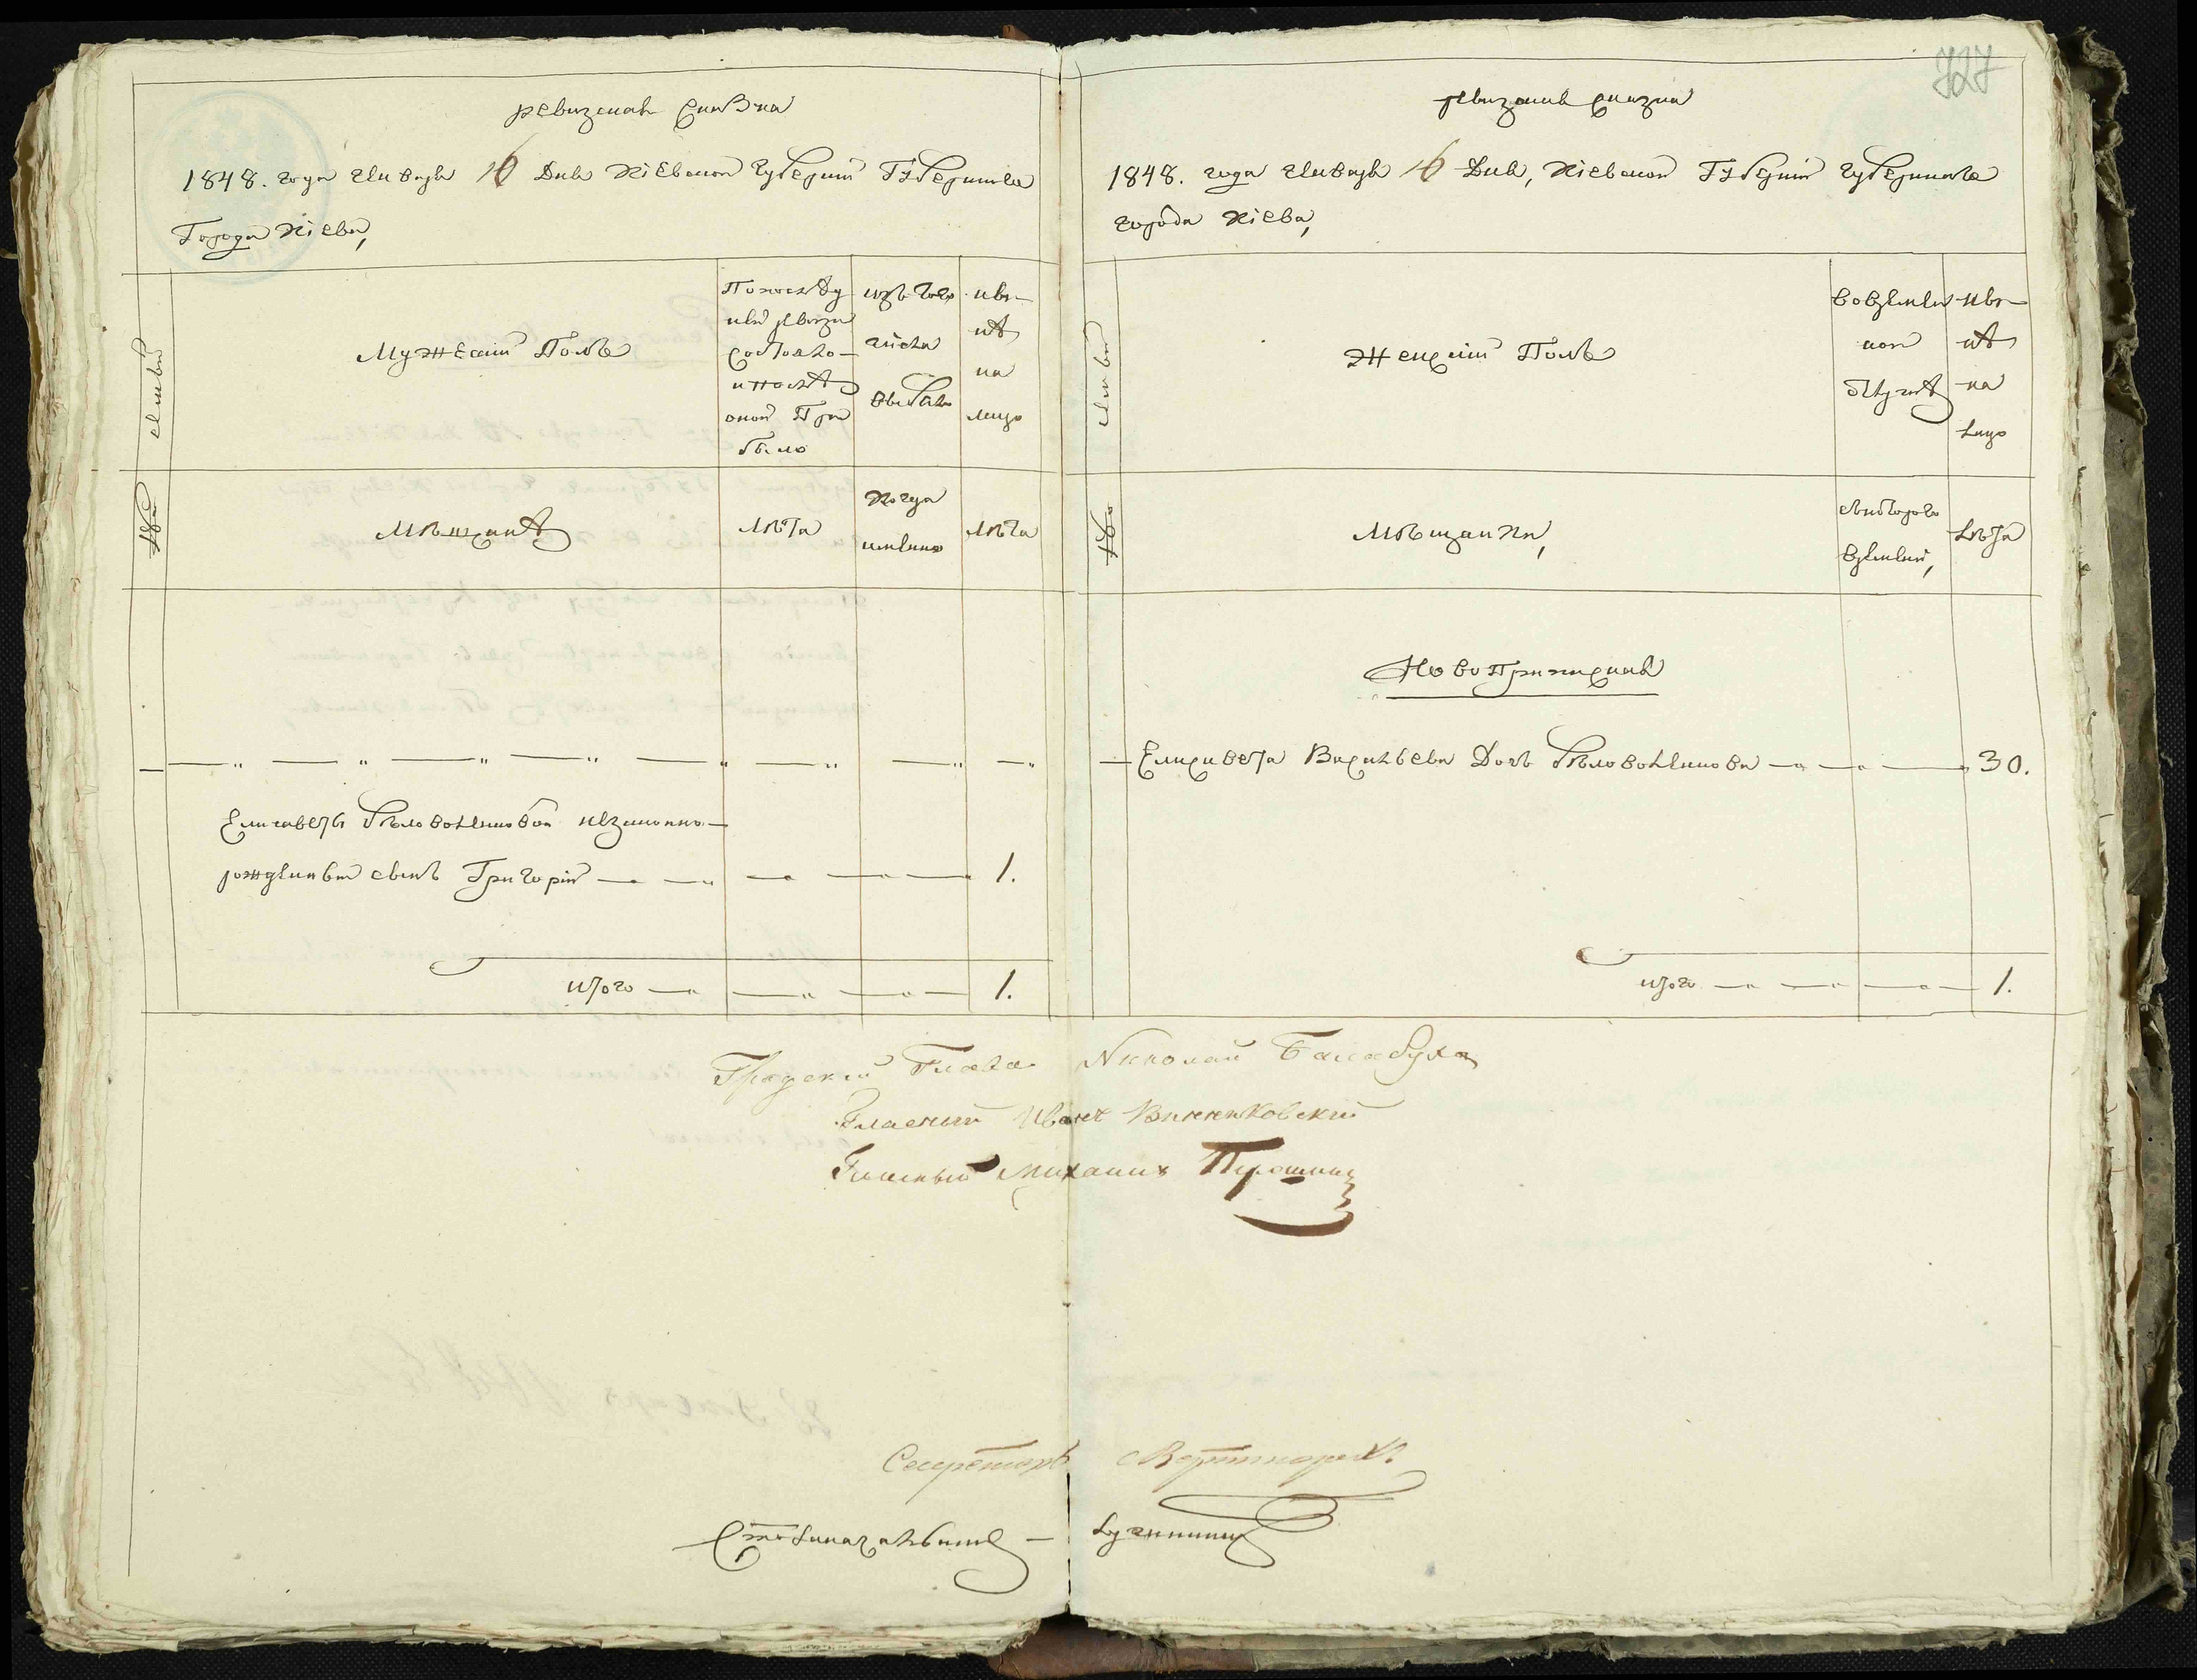 727
ревизская сказка
1848. года Генваря 16 Дня Кіевской Губерніи Губернскаго
Города Кіева,
семьи
Мужескій Полъ
По послѣд
ней ревизіи
состояло
и послѣ
оной При
было
изъ того
числа
выбыло
ны-
нѣ
на
лицо
№
Мѣщанѣ
Лѣта
Когда
именно
Лѣта
Елисаветы Бѣловоленковой незаконно-
рожденный сынъ Григорій 1.
итого 1.
ревизская сказка
1848. года Генваря 16 Дня, Кіевской Губерніи Губернскаго
города Кіева,
семьи
Женскій Полъ
во времен
ной
отлучкѣ
ны-
нѣ
на
лицо
№
Мѣщанки,
съ котораго
времени,
Лѣта
Новоприписная
Елисавета Васильева Дочь Бѣловоленкова 30.
итого 1.
Градскій Глава Николай Балабуха
Гласный Иванъ Винниковскій
Гласный Михаилъ
Секретарь
Столоначальникъ